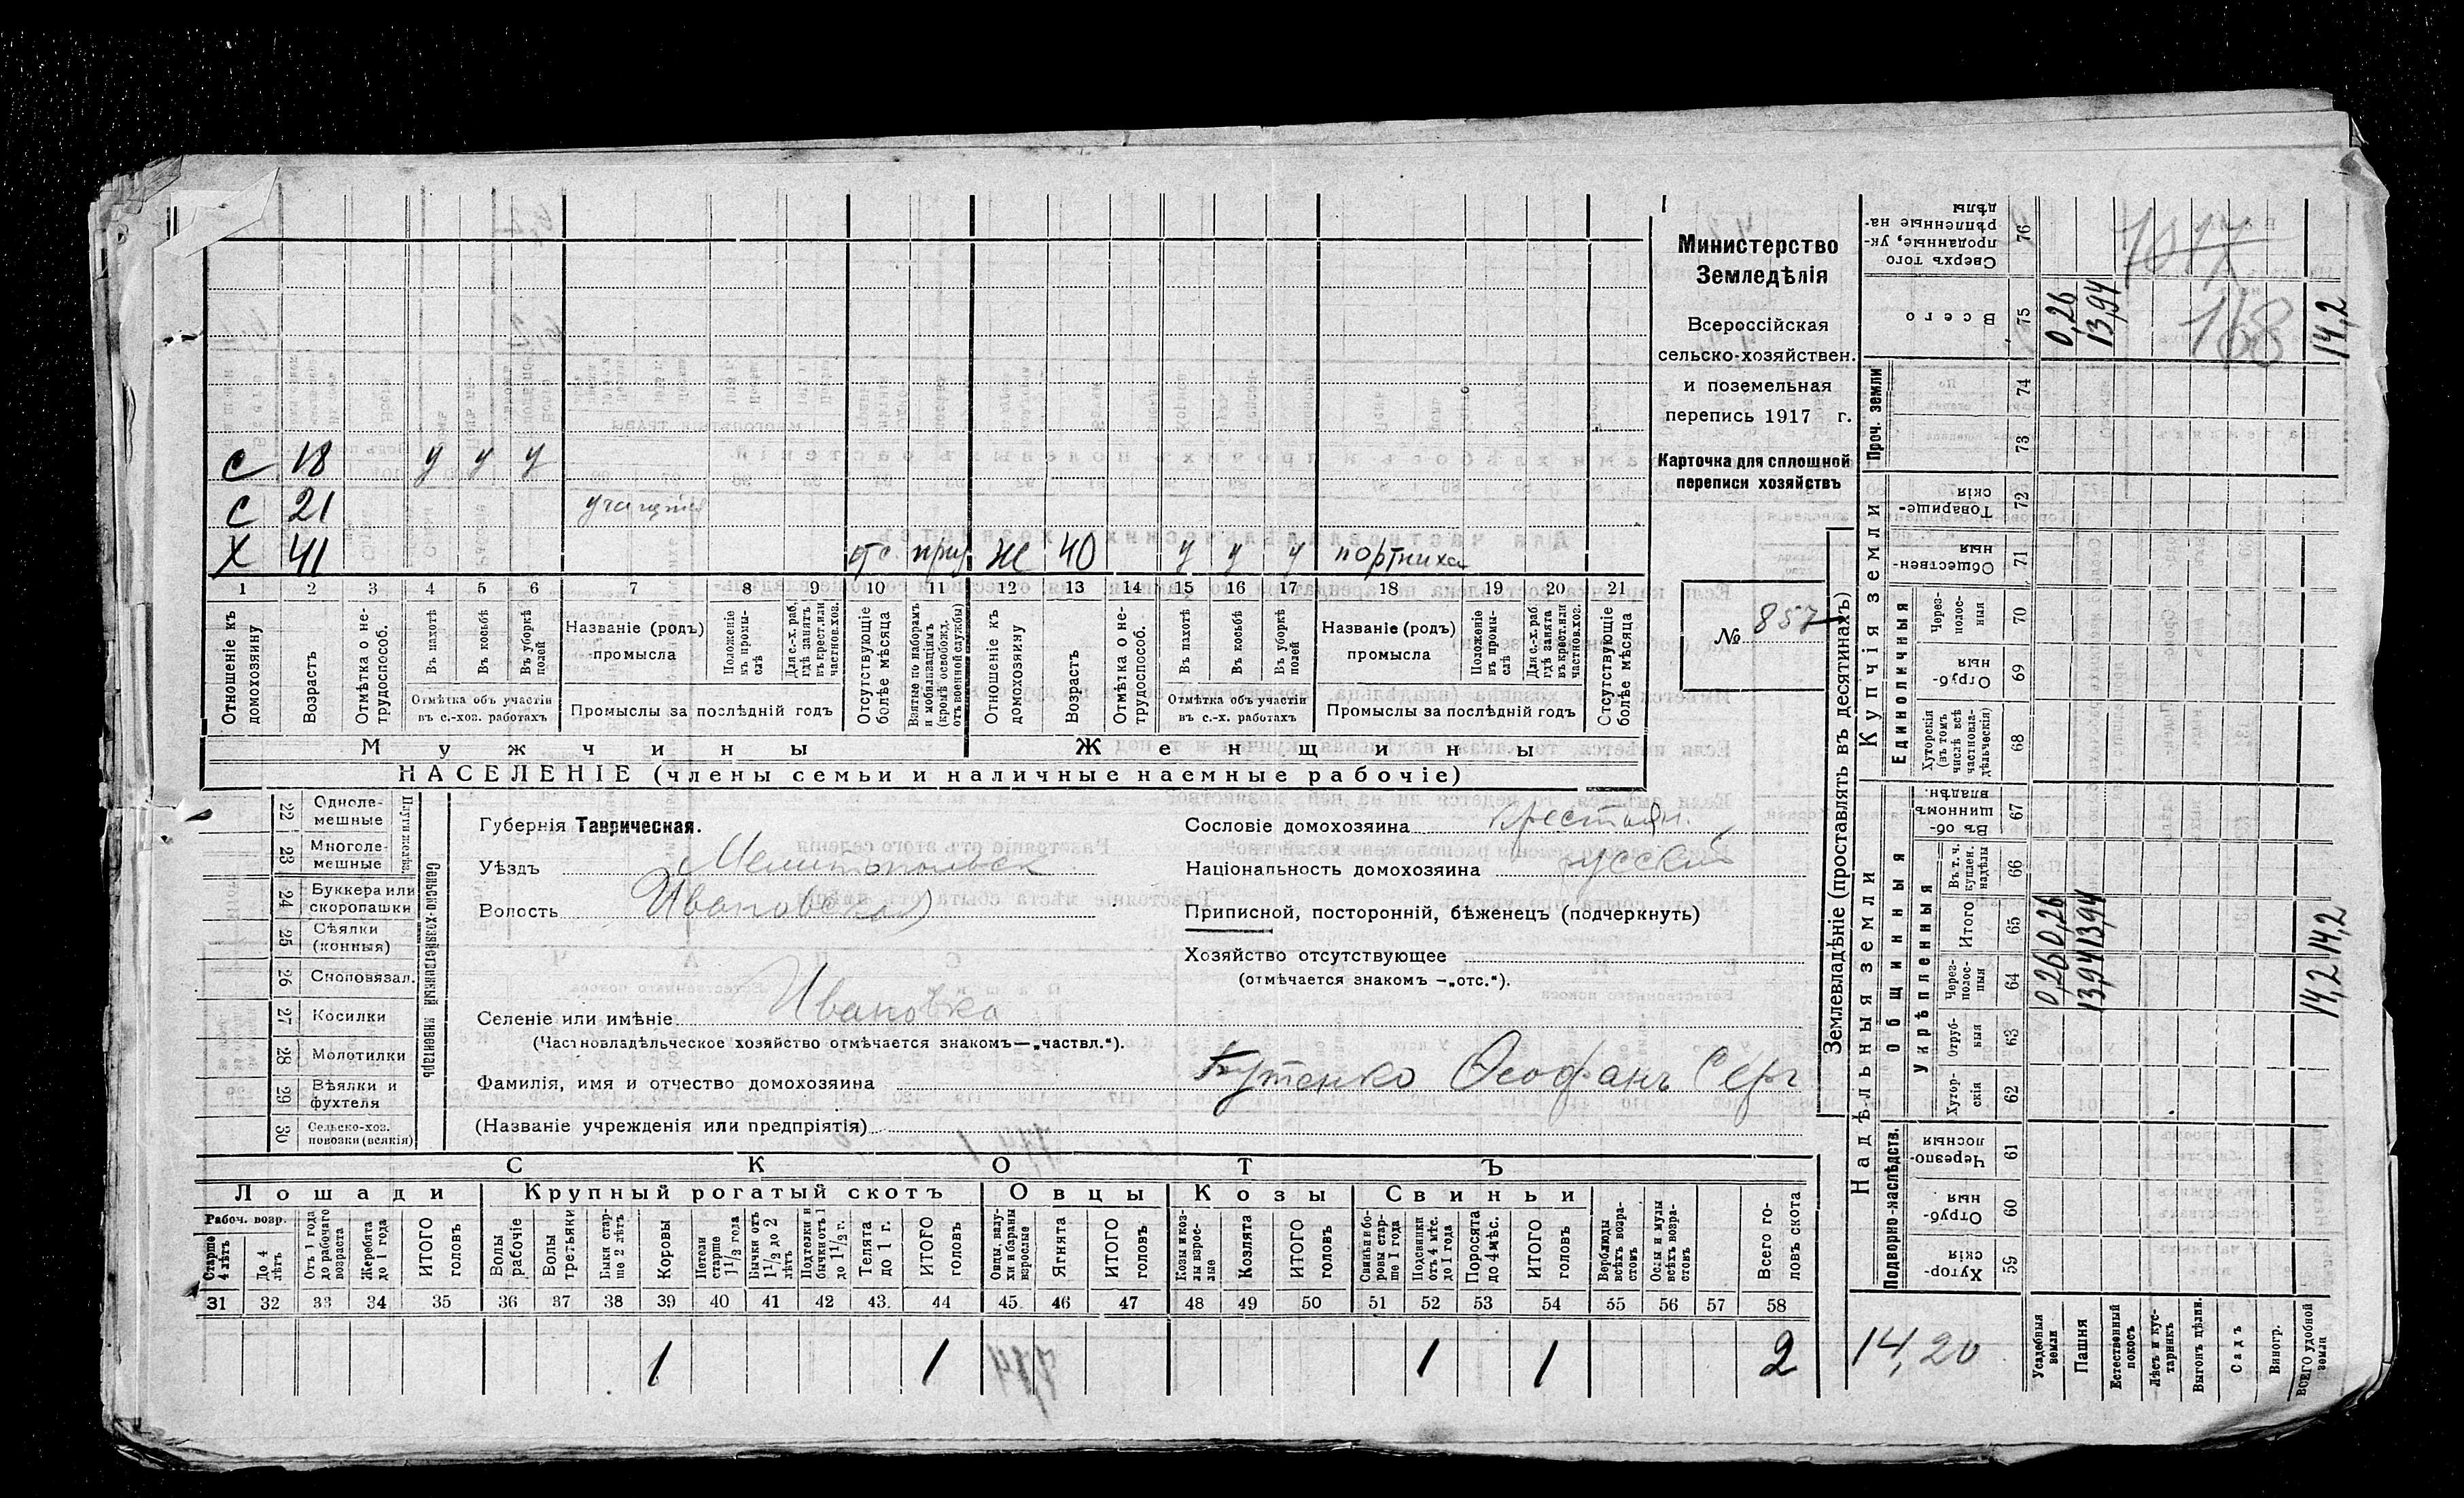 С 18 у у у
С 21 учащійся
Х 41 отс приз Ж 40 у у у портниха
1 2 3 4 5 6 7 8 9 10 11 12 13 14 15 16 17 18 19 20 21
Отношеніе къ домохозяину
Возрастъ
Отмѣтка о не-трудоспособ.
Въ пахотѣ
Въ косьбѣ
Въ уборкѣ полей
Отмѣтка объ участіи въ с.-хоз. работахъ
Названіе (родъ) промысла
Положеніе въ промыслѣ
Для с.-х. раб. гдѣ занятъ въ крест. или частнов. хоз.
Промыслы за послѣдній годъ
Отсутствующіе болѣе мѣсяца
Взятые по наборамъ и мобилизаціямъ (кромѣ освобожд. отъ военной службы)
Отношеніе къ домохозяину
Возрастъ
Отмѣтка о не-трудоспособ.
Въ пахотѣ
Въ косьбѣ
Въ уборкѣ полей
Отмѣтка объ участіи въ с.-х. работахъ
Названіе (родъ) промысла
Положеніе въ промыслѣ
Для с.-х. раб. гдѣ занята въ крест. или частнов. хоз.
Промыслы за послѣдній годъ
Отсутствующіе болѣе мѣсяца
Мужчины
Женщины
НАСЕЛЕНІЕ (члены семьи и наличные наемные рабочіе)
Министерство
Земледѣлія
Всероссійская
сельско-хозяйствен.
и поземельная
перепись 1917 г.
Карточка для сплошной
переписи хозяйствъ
№ 857
Сельско-хозяйственный инвентарь
22 Одноле-мешные
23 Многоле-мешные
24 Буккера или скоропашки
25 Сѣялки (конныя)
26 Сноповязал.
27 Косилки
28 Молотилки
29 Вѣялки и фухтеля
30 Сельско-хоз. повозки (всякія)
Губернія Таврическая.
Уѣздъ Мелитопольск
Волость Ивановская
Селеніе или имѣніе Ивановка
(Частновладѣльческое хозяйство отмѣчается знакомъ—„частвл.“).
Фамилія, имя и отчество домохозяина Бутенко Ѳеофанъ Серг
(Названіе учрежденія или предпріятія)
Сословіе домохозяина крестьян.
Національность домохозяина русскій
Приписной, посторонній, бѣженецъ (подчеркнуть)
Хозяйство отсутствующее
(отмѣчается знакомъ —„отс.“).
СКОТЪ
Лошади
Крупный рогатый скотъ
Овцы
Козы
Свиньи
Рабоч. возр.
Старше 4 лѣтъ
До 4 лѣтъ
Отъ 1 года до рабочаго возраста
Жеребята до 1 года
ИТОГО головъ
Волы рабочіе
Волы третьяки
Быки стар-ше 2 лѣтъ
Коровы
Нетели старше 1½ года
Бычки отъ 1½ до 2 лѣтъ
Подтелки и бычки отъ 1 до 1½ г.
Телята до 1 г.
ИТОГО головъ
Овцы, валу-хи и бараны взрослые
Ягнята
ИТОГО головъ
Козы и коз-лы взрос-лые
Козлята
ИТОГО головъ
Свиньи и бо-ровы стар-ше 1 года
Подсвинки отъ 4 мѣс. до 1 года
Поросята до 4 мѣс.
ИТОГО головъ
Верблюды всѣхъ возра-стовъ
Ослы и мулы всѣхъ возра-стовъ
Всего го-ловъ скота
31 32 33 34 35 36 37 38 39 40 41 42 43 44 45 46 47 48 49 50 51 52 53 54 55 56 57 58
1 1 1 1 2
Землевладѣніе (проставлять въ десятинахъ)
Надѣльныя земли
Купчія земли
Проч. земли
Подворно-наслѣдств.
Общинныя
Укрѣпленныя
Единоличныя
Сверхъ того проданные, ук-рѣпленные на-дѣлы 76
Всего 75 0,26 13,94 14,2
74
73
Товарище-скія 72
Обществен-ныя 71
Через-полос-ныя 70
Отруб-ныя 69
Хуторскія (въ томъ числѣ всѣ частновла-дѣльческія) 68
Въ об-щинномъ владѣн. 67
Въ т. ч. куплен. надѣлы 66
Итого 65 0,26 13,94 14,2
Через-полос-ныя 64 0,26 13,94 14,2
Отруб-ныя 63
Хутор-скія 62
Черезпо-лосныя 61
Отруб-ныя 60
Хутор-скія 59
14,20
Усадебныя земли
Пашня
Естественный покосъ
Лѣсъ и кус-тарникъ
Выгонъ цѣлин.
Садъ
Виногр.
ВСЕГО удобной земли
1017
168